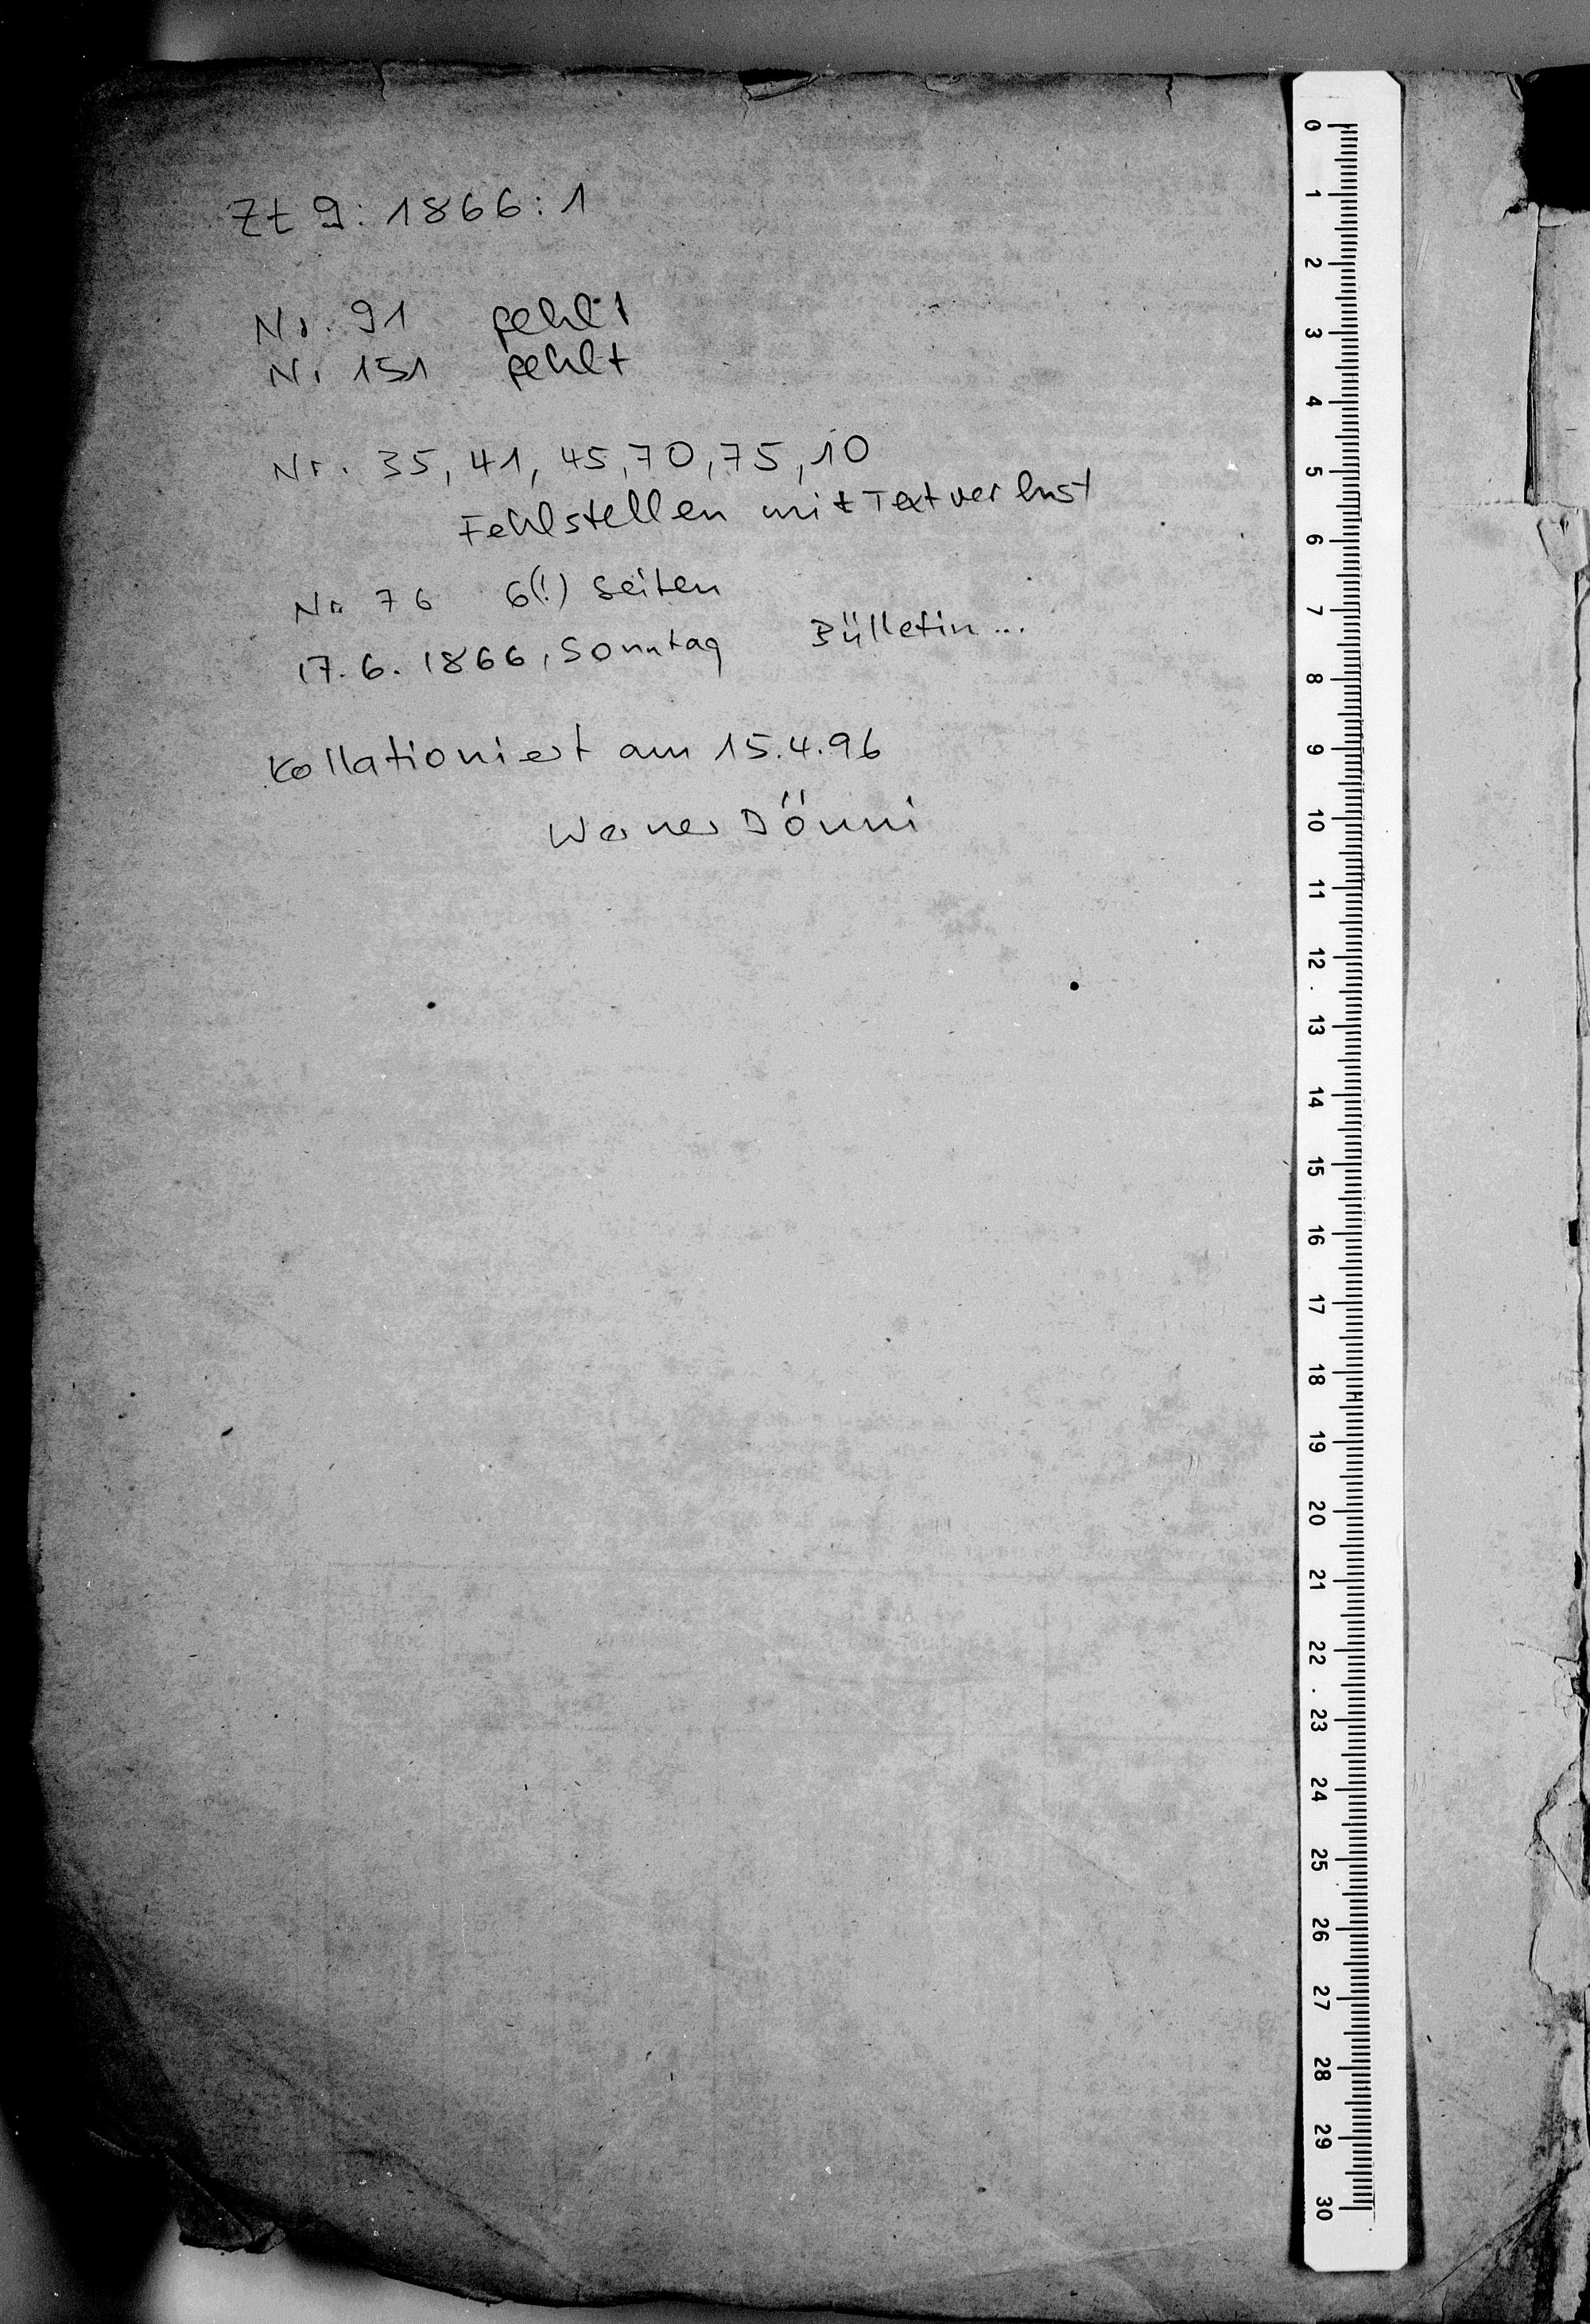 Zt 9: 1866: 1
Nr. 91 fehlt
Nr 151 fehlt
Nr. 35, 41, 45, 70, 75, 10
Fehlstellen mit Textverlust
Nr. 76 6(!) Seiten
17. 6. 1866, Sonntag Bülletin...
Kollationiert am 15.4.96
Werner Dönni
0
1
2
3
4
5
6
7
8
9
10
11
12
13
14
15
16
17
18
19
20
21
22
23
24
25
26
27
28
29
30